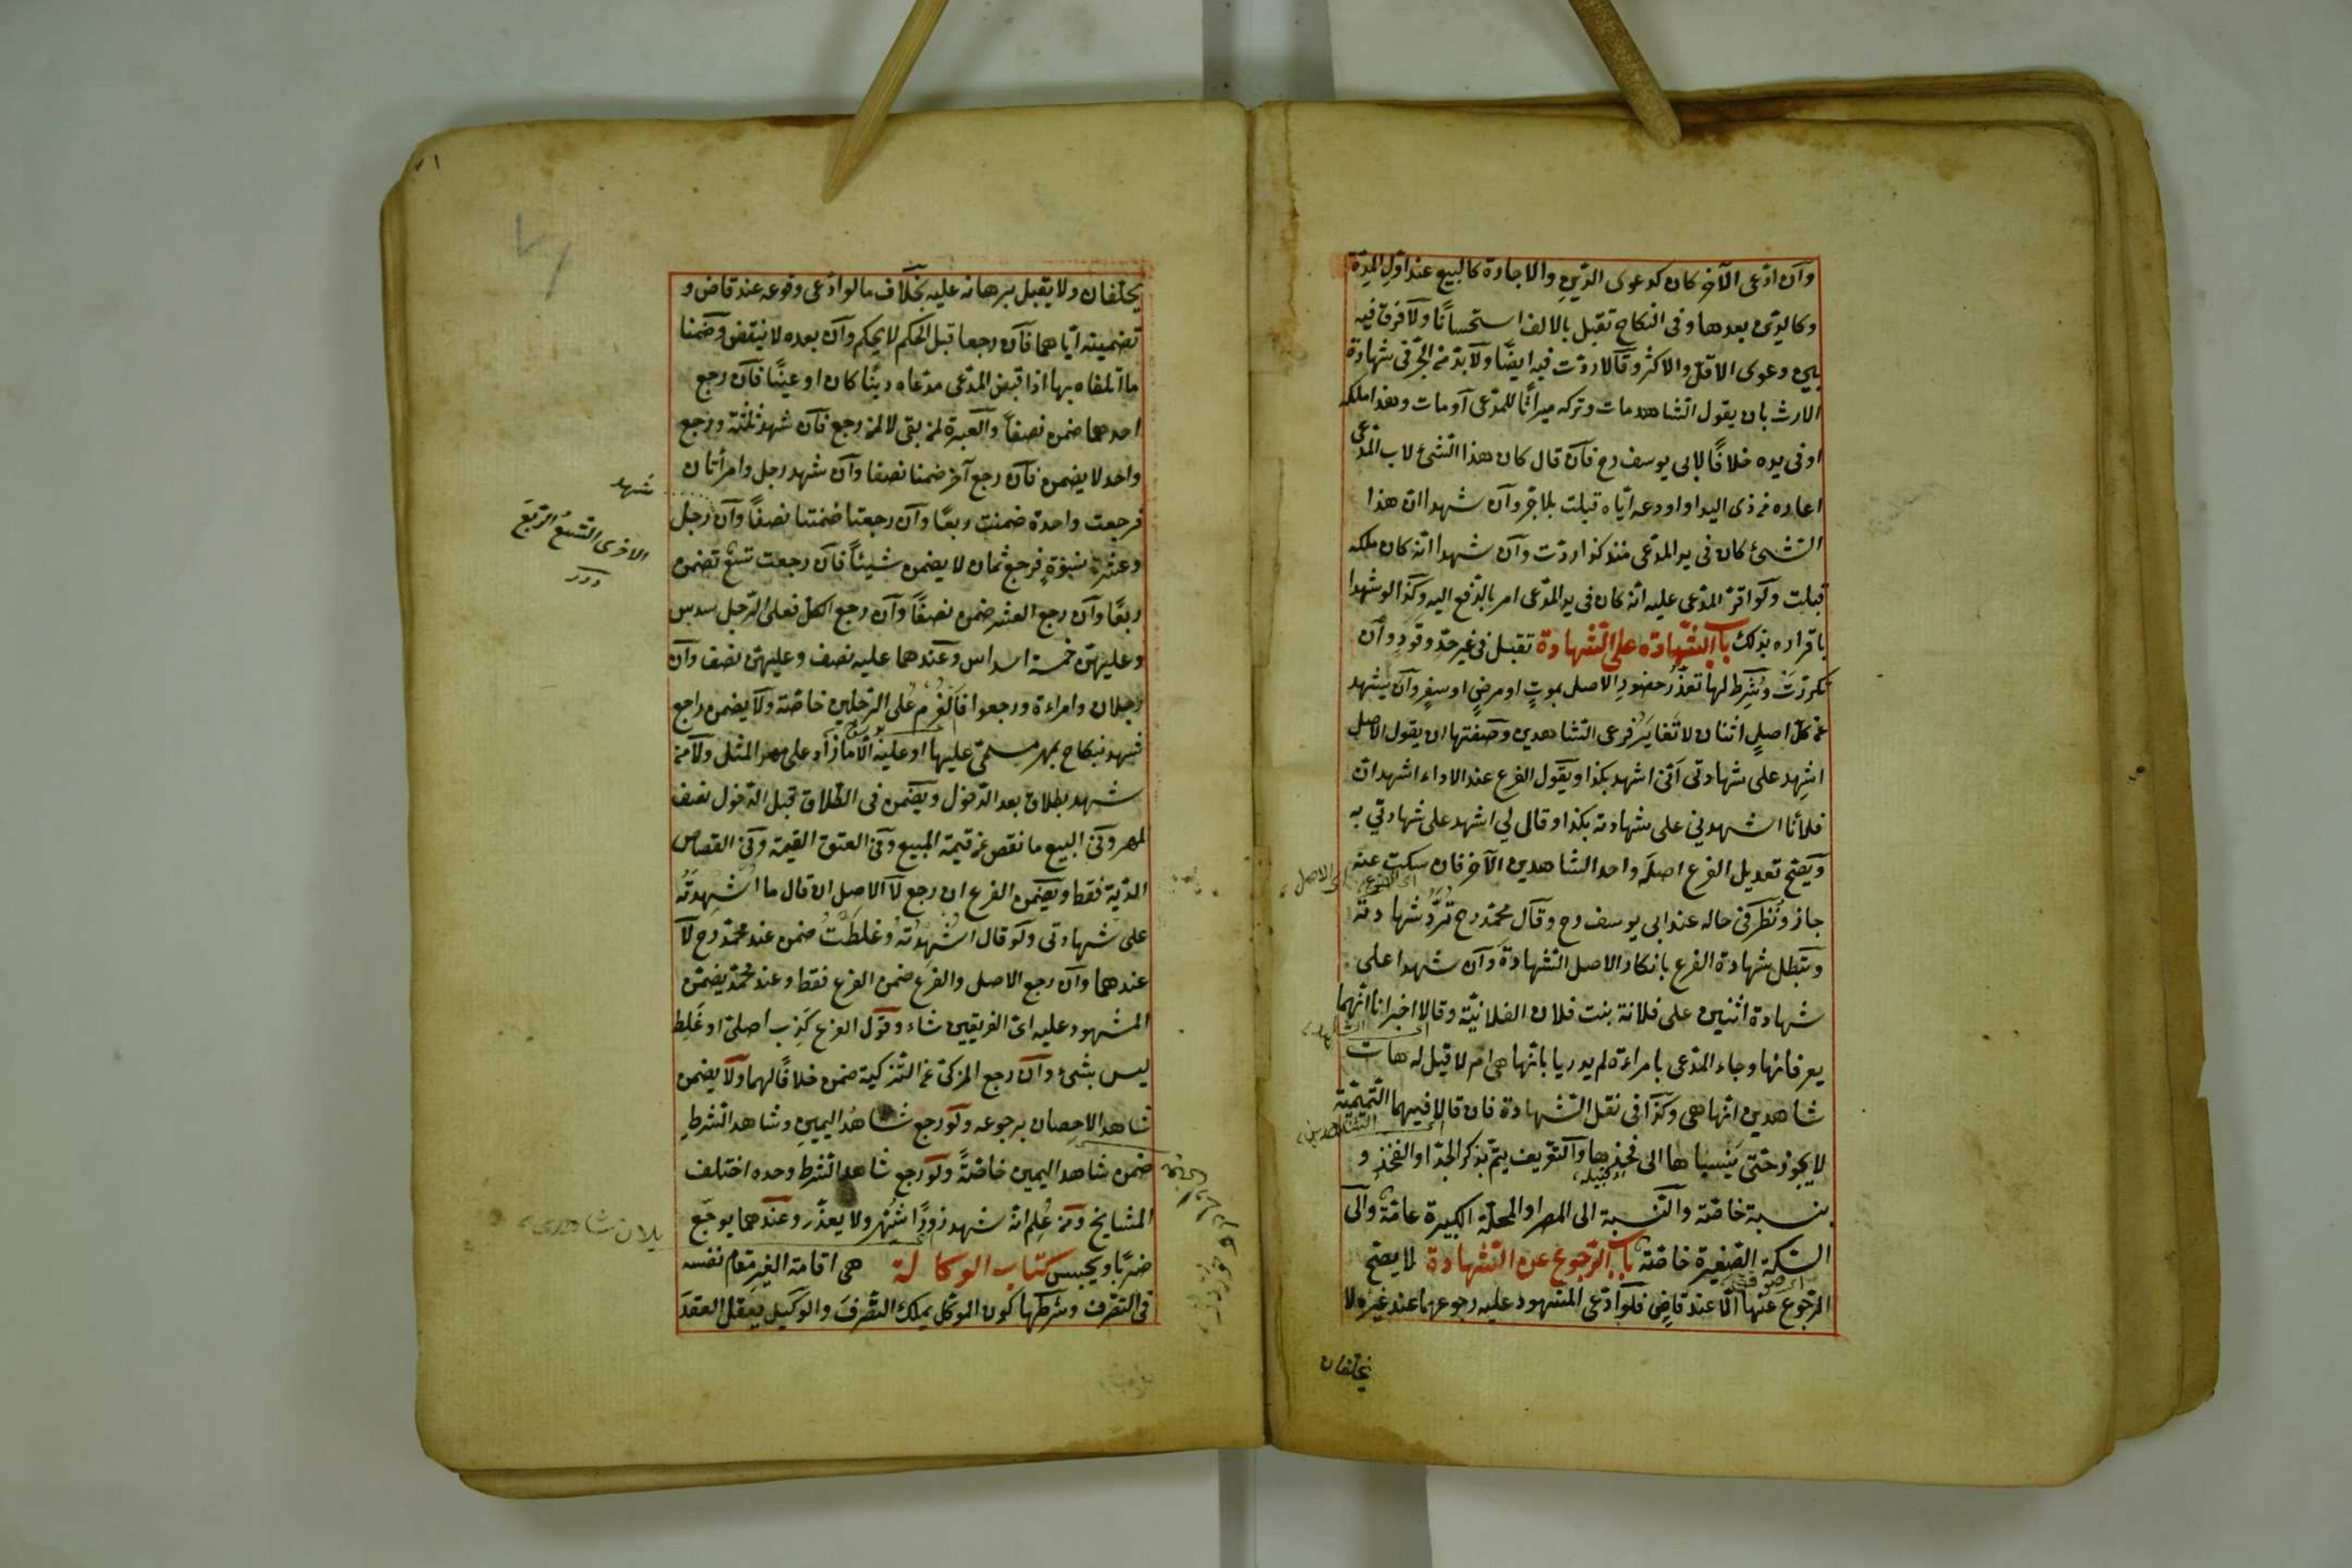 وآن ادّعى الآخر كان كدعوى الدّين والاجارة كالبيع عند اوّل المدّة
وكالدّين بعدها وفى النكاح تقبل بالالف استحسانًا ولا فرق فيه
بين دعوى الاقلّ والاكثر وقالا ردّت فيه ايضًا ولابدّ من الجرّ فى شهادة
الارث بان يقول الشاهد مات وتركه ميراثًا للمدّعى او مات وهذا ملكه
او فى يده خلافًا لابى يوسف رح فآن قال كان هذا الشئ لاب المدّعى
اعاره من ذى اليد او اودعه ايّاه قبلت بلا جرّ وآن شهدا ان هذا
الشئ كان فى يد المدّعى منذ كذا ردّت وآن شهدا انّه كان ملكه
قبلت ولو اقرّ المدّعى عليه انّه كان فى يد المدّعى امر بالدّفع اليه وكذا لو شهدا
باقراره بذلك باب الشهادة على الشهادة تقبل فى غير حدّ وقود وآن
تكرّرت وشرط لها تعذّر حضور الاصل بموتٍ او مرضٍ او سفرٍ وآن يشهد
عن كلّ اصلٍ اثنان لا تغاير فرعى الشاهدين وصفتها ان يقول الاصل
اشهد على شهادتى انّى اشهد بكذا ويقول الفرع عند الاداء اشهد انّ
فلانًا اشهدني على شهادته بكذا وقال لي اشهد على شهادتي به
ويصحّ تعديل الفرع اصله واحد الشاهدين الآخر فان سكت عنه
اى الفرع اى الاصل
جاز ونُظر فى حاله عند ابى يوسف رح وقال محمّد رح تُردّ شهادته
وتبطل شهادة الفرع بانكار الاصل الشهادة وآن شهدا على
شهادة اثنين على فلانة بنت فلان الفلانيّة وقالا اخبرانا انّهما
يعرفانها وجاء المدّعى بامراءة لم يدريا بانّها هى ام لا قيل له هات
شاهدين انّها هى وكذا فى نقل الشهادة فان قالا فيهما التميميّة
لا يجوز حتّى ينسباها الى فخذها والتعريف يتمّ بذكر الجدّ او الفخذ و
بنسبة خاصّة والنّسبة الى المصر او المحلّة الكبيرة عامّة والى
السّكة الصّغيرة خاصّة باب الرّجوع عن الشهادة لا يصحّ
الرّجوع عنها الّا عند قاضٍ فلو ادّعى المشهود عليه رجوعهما عند غيره لا
يحلفان
يحلفان ولا يقبل برهانه عليه بخلاف ما لو ادّعى وقوعه عند قاض و
تضمينه ايّاهما فآن رجعا قبل الحكم لا يحكم وآن بعده لا ينقض وضمنا
ما اتلفاه بها اذا قبض المدّعى مدّعاه دينًا كان او عينًا فآن رجع
احدهما ضمن نصفًا والعبرة لمن بقى لا لمن رجع فآن شهد ثلثة ورجع
واحد لا يضمن فآن رجع آخر ضمنا نصفا وآن شهد رجل وامرأتان
شهد
فرجعت واحدة ضمنت ربعًا وآن رجعتا ضمنتا نصفًا وآن رجل
وعشرة نسوةٍ فرجع ثمان لا يضمن شيئًا فآن رجعت تسع تضمن
الاخرى التسع الرّبع
ربعًا وآن رجع العشر ضمن نصفًا وآن رجع الكل فعلى الرّجل سدس
وعليهنّ خمسة اسداس وعندهما عليه نصف وعليهنّ نصف وآن
رجلان وامراءة ورجعوا فالغرم على الرّجلين خاصّة ولا يضمن راجع
شهد بنكاح بمهر مسمّى عليها او عليه الّا ما زاد على مهر المثل ولا من
شهد بطلاق بعد الدّخول ويضمن فى الطّلاق قبل الدّخول نصف
المهر وفى البيع ما نقص عن قيمة المبيع وفى العتق القيمة وفى القصاص
الدّية فقط ويضمن الفرع ان رجع لا الاصل ان قال ما اشهدته
على شهادتى ولو قال اشهدته وغلطت ضمن عند محمّد رح لا
عندهما وآن رجع الاصل والفرع ضمن الفرع فقط وعند محمّد يضمّن
المشهود عليه اىّ الفريقين شاء وقول الفرع كذب اصلى او غلط
ليس بشئ وآن رجع المزكّى عن التزكية ضمن خلافًا لهما ولا يضمن
شاهد الاحصان برجوعه ولو رجع شاهد اليمين وشاهد الشرط
ضمن شاهد اليمين خاصّةً ولو رجع شاهد الشرط وحده اختلف
المشايخ ومن عُلم انّه شهد زورًا شُهر ولا يعذّر وعندهما يوجّع
ضربًا ويحبس كتاب الوكالة هى اقامة الغير مقام نفسه
فى التصرف وشرطها كون الموكّل يملك التصرف والوكيل يعقل العقد